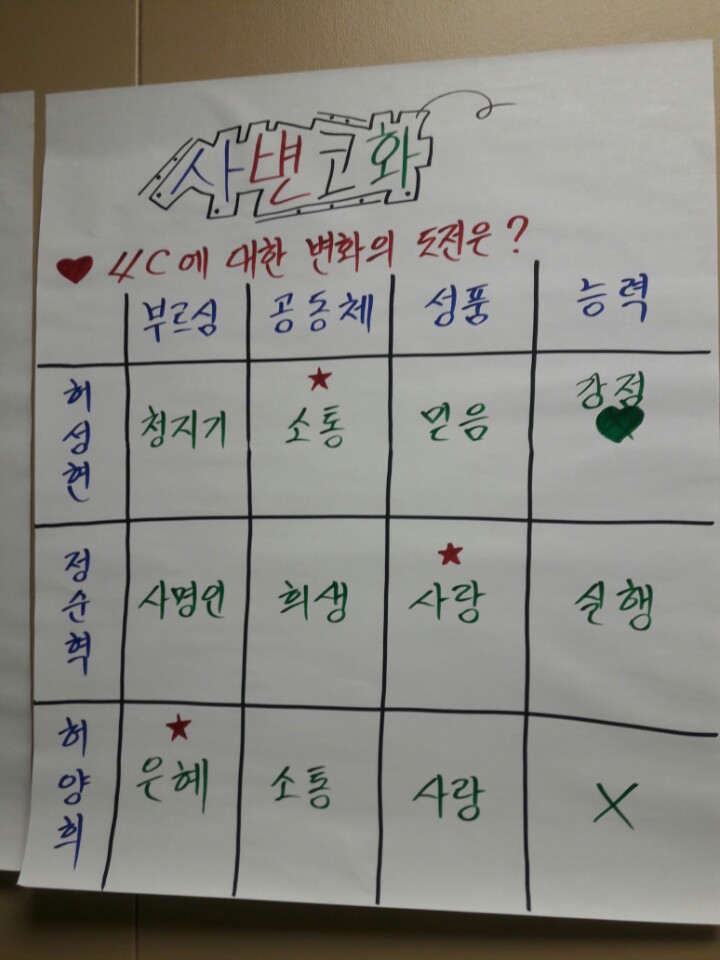 사변고화
4C에 대한 변화의 도전은?
부르심 공동체 성품 능력
허성현 청지기 소통 믿음 강점
정순혁 사명인 희생 사랑 실행
허양희 은혜 소통 사랑 X